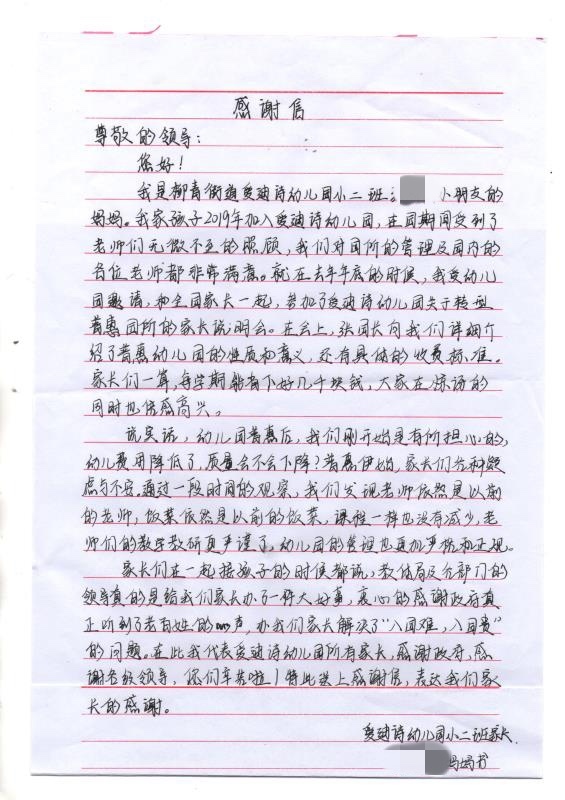 感谢信
尊敬的领导：
您好！
我是柳青街道爱迪诗幼儿园小二班 小朋友的
妈妈。我家孩子2019年加入爱迪诗幼儿园，在园期间受到了
老师们无微不至的照顾，我们对园所的管理及园内的
各位老师都非常满意。就在去年年底的时候，我受幼儿
园邀请，和全园家长一起，参加了爱迪诗幼儿园关于转型
普惠园所的家长说明会。在会上，张园长向我们详细介
绍了普惠幼儿园的性质和意义，还有具体的收费标准。
家长们一算，每学期能省下好几千块钱，大家在惊讶的
同时也倍感高兴。
说实话，幼儿园普惠后，我们刚开始是有所担心的，
幼儿费用降低了，质量会不会下降？普惠伊始，家长们各种疑
虑与不安。通过一段时间的观察，我们发现老师依然是以前
的老师，饭菜依然是以前的饭菜，课程一样也没有减少，老
师们的教学教研更严谨了，幼儿园的管理也更加严格和正规。
家长们在一起接孩子的时候都说，教体局及各部门的
领导真的是给我们家长办了一件大好事，衷心的感谢政府真
正听到了老百姓的心声，为我们家长解决了“入园难，入园贵”
的问题。在此我代表爱迪诗幼儿园所有家长，感谢政府，感
谢各级领导，您们辛苦啦！特此送上感谢信，表达我们家
长的感谢。
爱迪诗幼儿园小二班家长
妈妈书